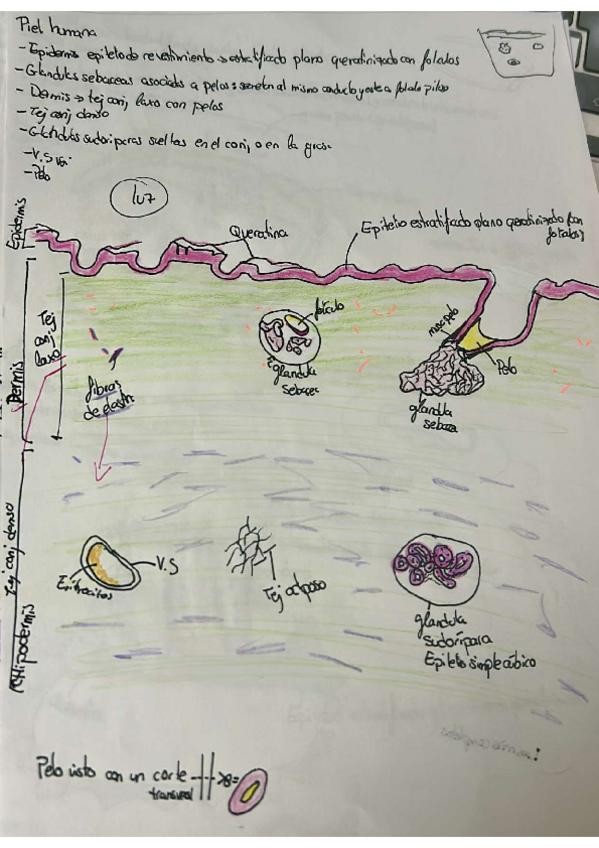 Piel humana
- Epidermis epitelio de revestimiento → estratificado plano queratinizado con folatos
- Glándulas sebaceas asociadas a pelos: secretan al mismo conducto
- Dermis → tej conj laxo con pelos
- Tej conj denso
- Glándulas sudoriparas sueltas en el conj, o en la grasa
- V.S
- Pelo
luz
Epidermis
Queratina
Epitelio estratificado plano queratinizado (con
folatos)
Tej
conj
laxo
Dermis
folículo
glandula
sebacea
musc pelo
Pelo
glandula
sebacea
fibras
de elastina
Tej conj denso
Hipodermis
Eritrocitos
V.S
Tej adiposo
glandula
sudorípara
Epitelio simple cúbico
Pelo visto con un corte
transversal